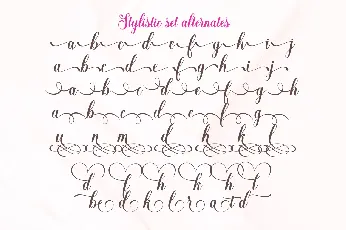 Stylistic set alternates
a b c d e f g h i j
a b c d e f g h i j
a b c d e f g h
a b c d e f g
u n m d h k l
d f h k h t
b d h l r a t d